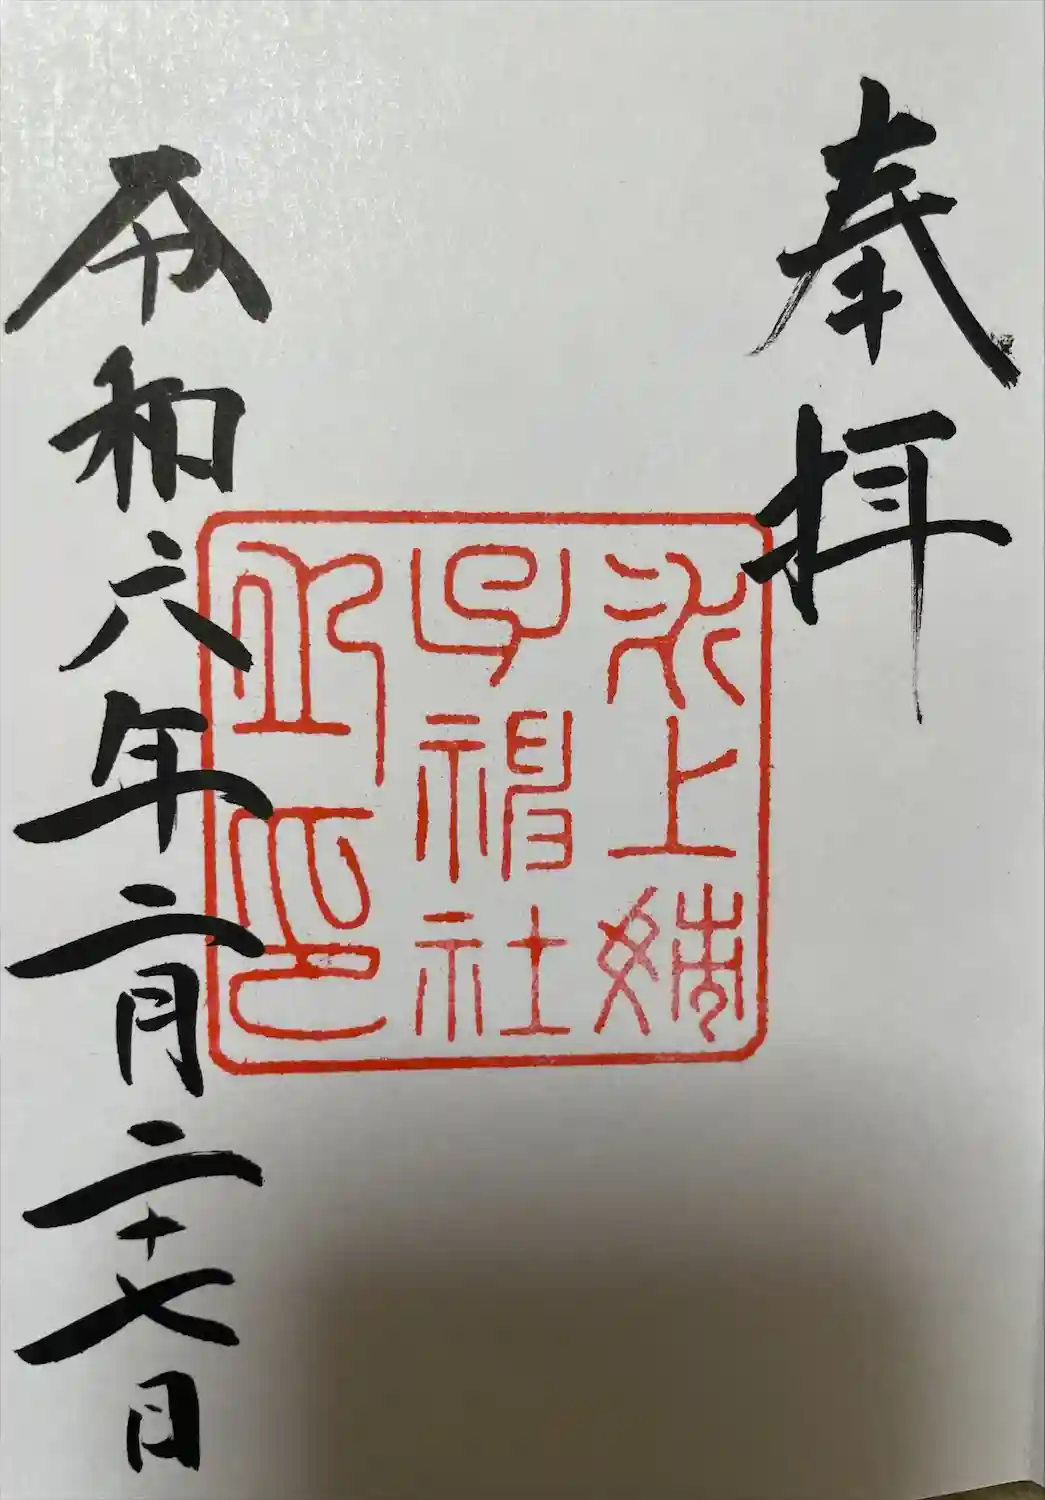 奉拝
氷上姉
子神社
之印
令和六年二月二十七日